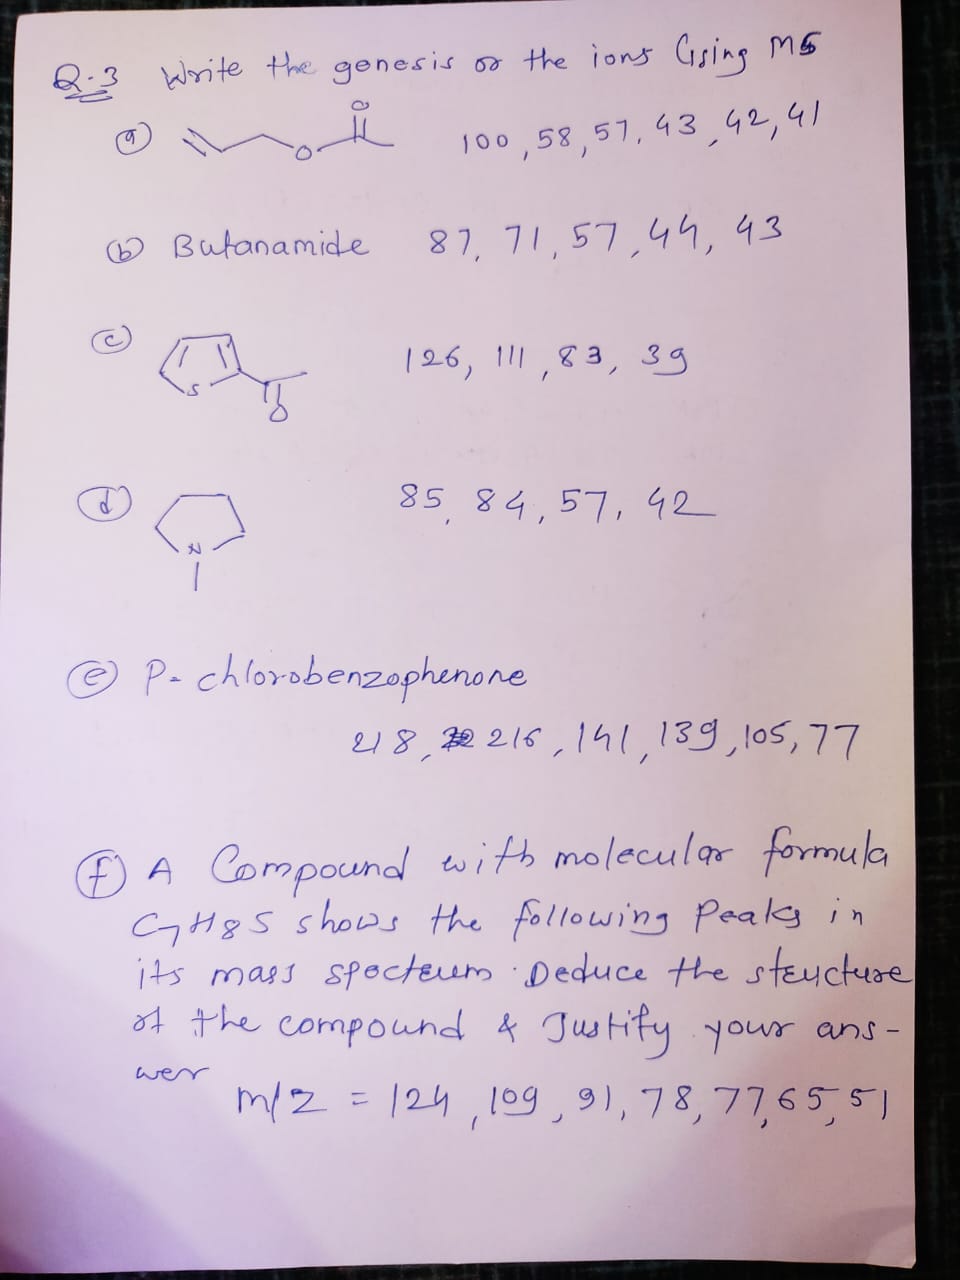 Q-3 Write the genesis or the ions Using MS
(a) O O 100, 58, 57, 43, 42, 41
(b) Butanamide 87, 71, 57, 44, 43
(c) S O 126, 111, 83, 39
(d) N 85, 84, 57, 42
(e) P- chlorobenzophenone
218, 216, 141, 139, 105, 77
(f) A Compound with molecular formula
C7H8S shows the following Peaks in
its mass specteum. Deduce the steucture
of the compound & Justify your ans-
wer
m/z = 124, 109, 91, 78, 77, 65, 51